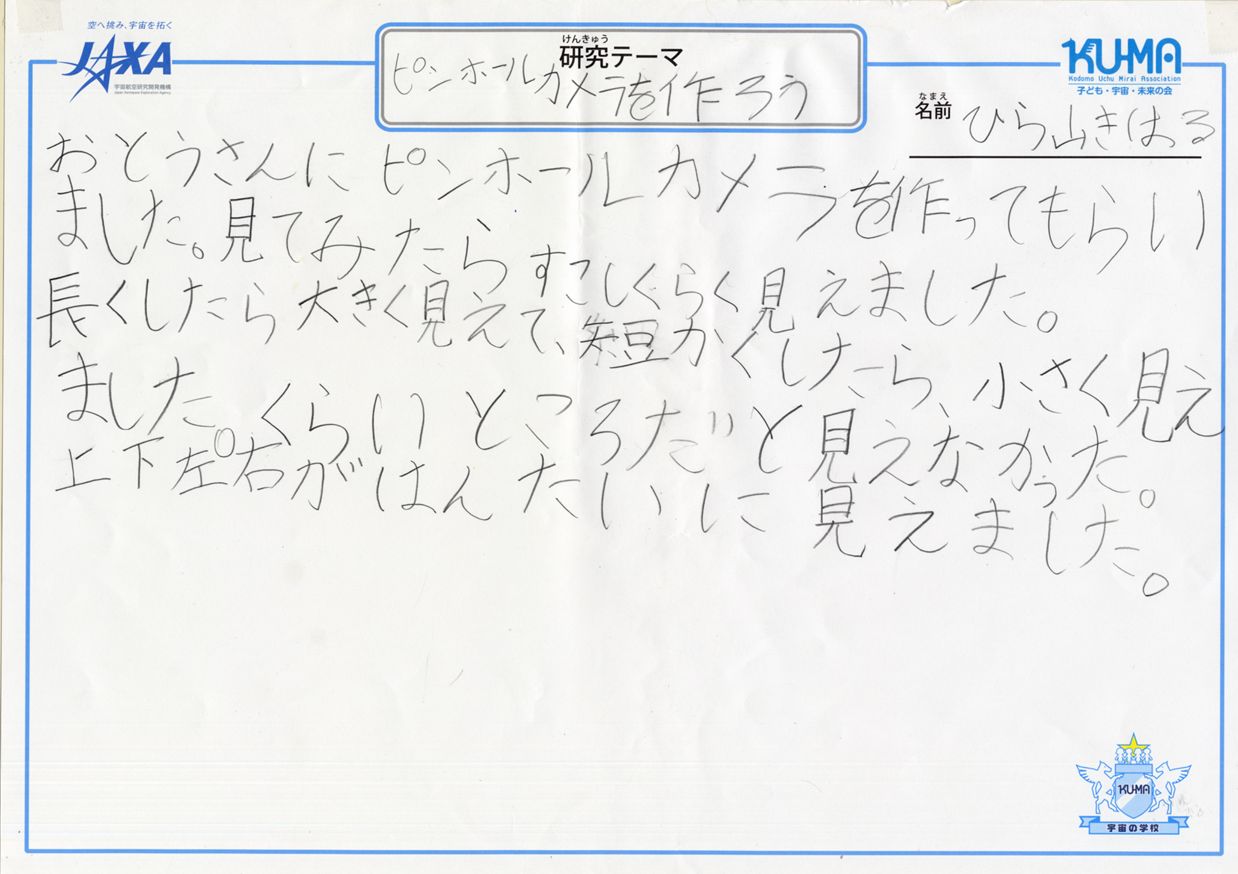 空へ挑み、宇宙を拓く
JAXA
宇宙航空研究開発機構
Japan Aerospace Exploration Agency
けんきゅう
研究テーマ
ピンホールカメラを作ろう
KU-MA
Kodomo Uchu Mirai Association
子ども・宇宙・未来の会
なまえ
名前 ひら山きはる
おとうさんにピンホールカメラを作ってもらい
ました。見てみたらすこしくらく見えました。
長くしたら大きく見えて、短かくしたら、小さく見え
ました。くらいところだと見えなかった。
上下左右がはんたいに見えました。
KU-MA
宇宙の学校